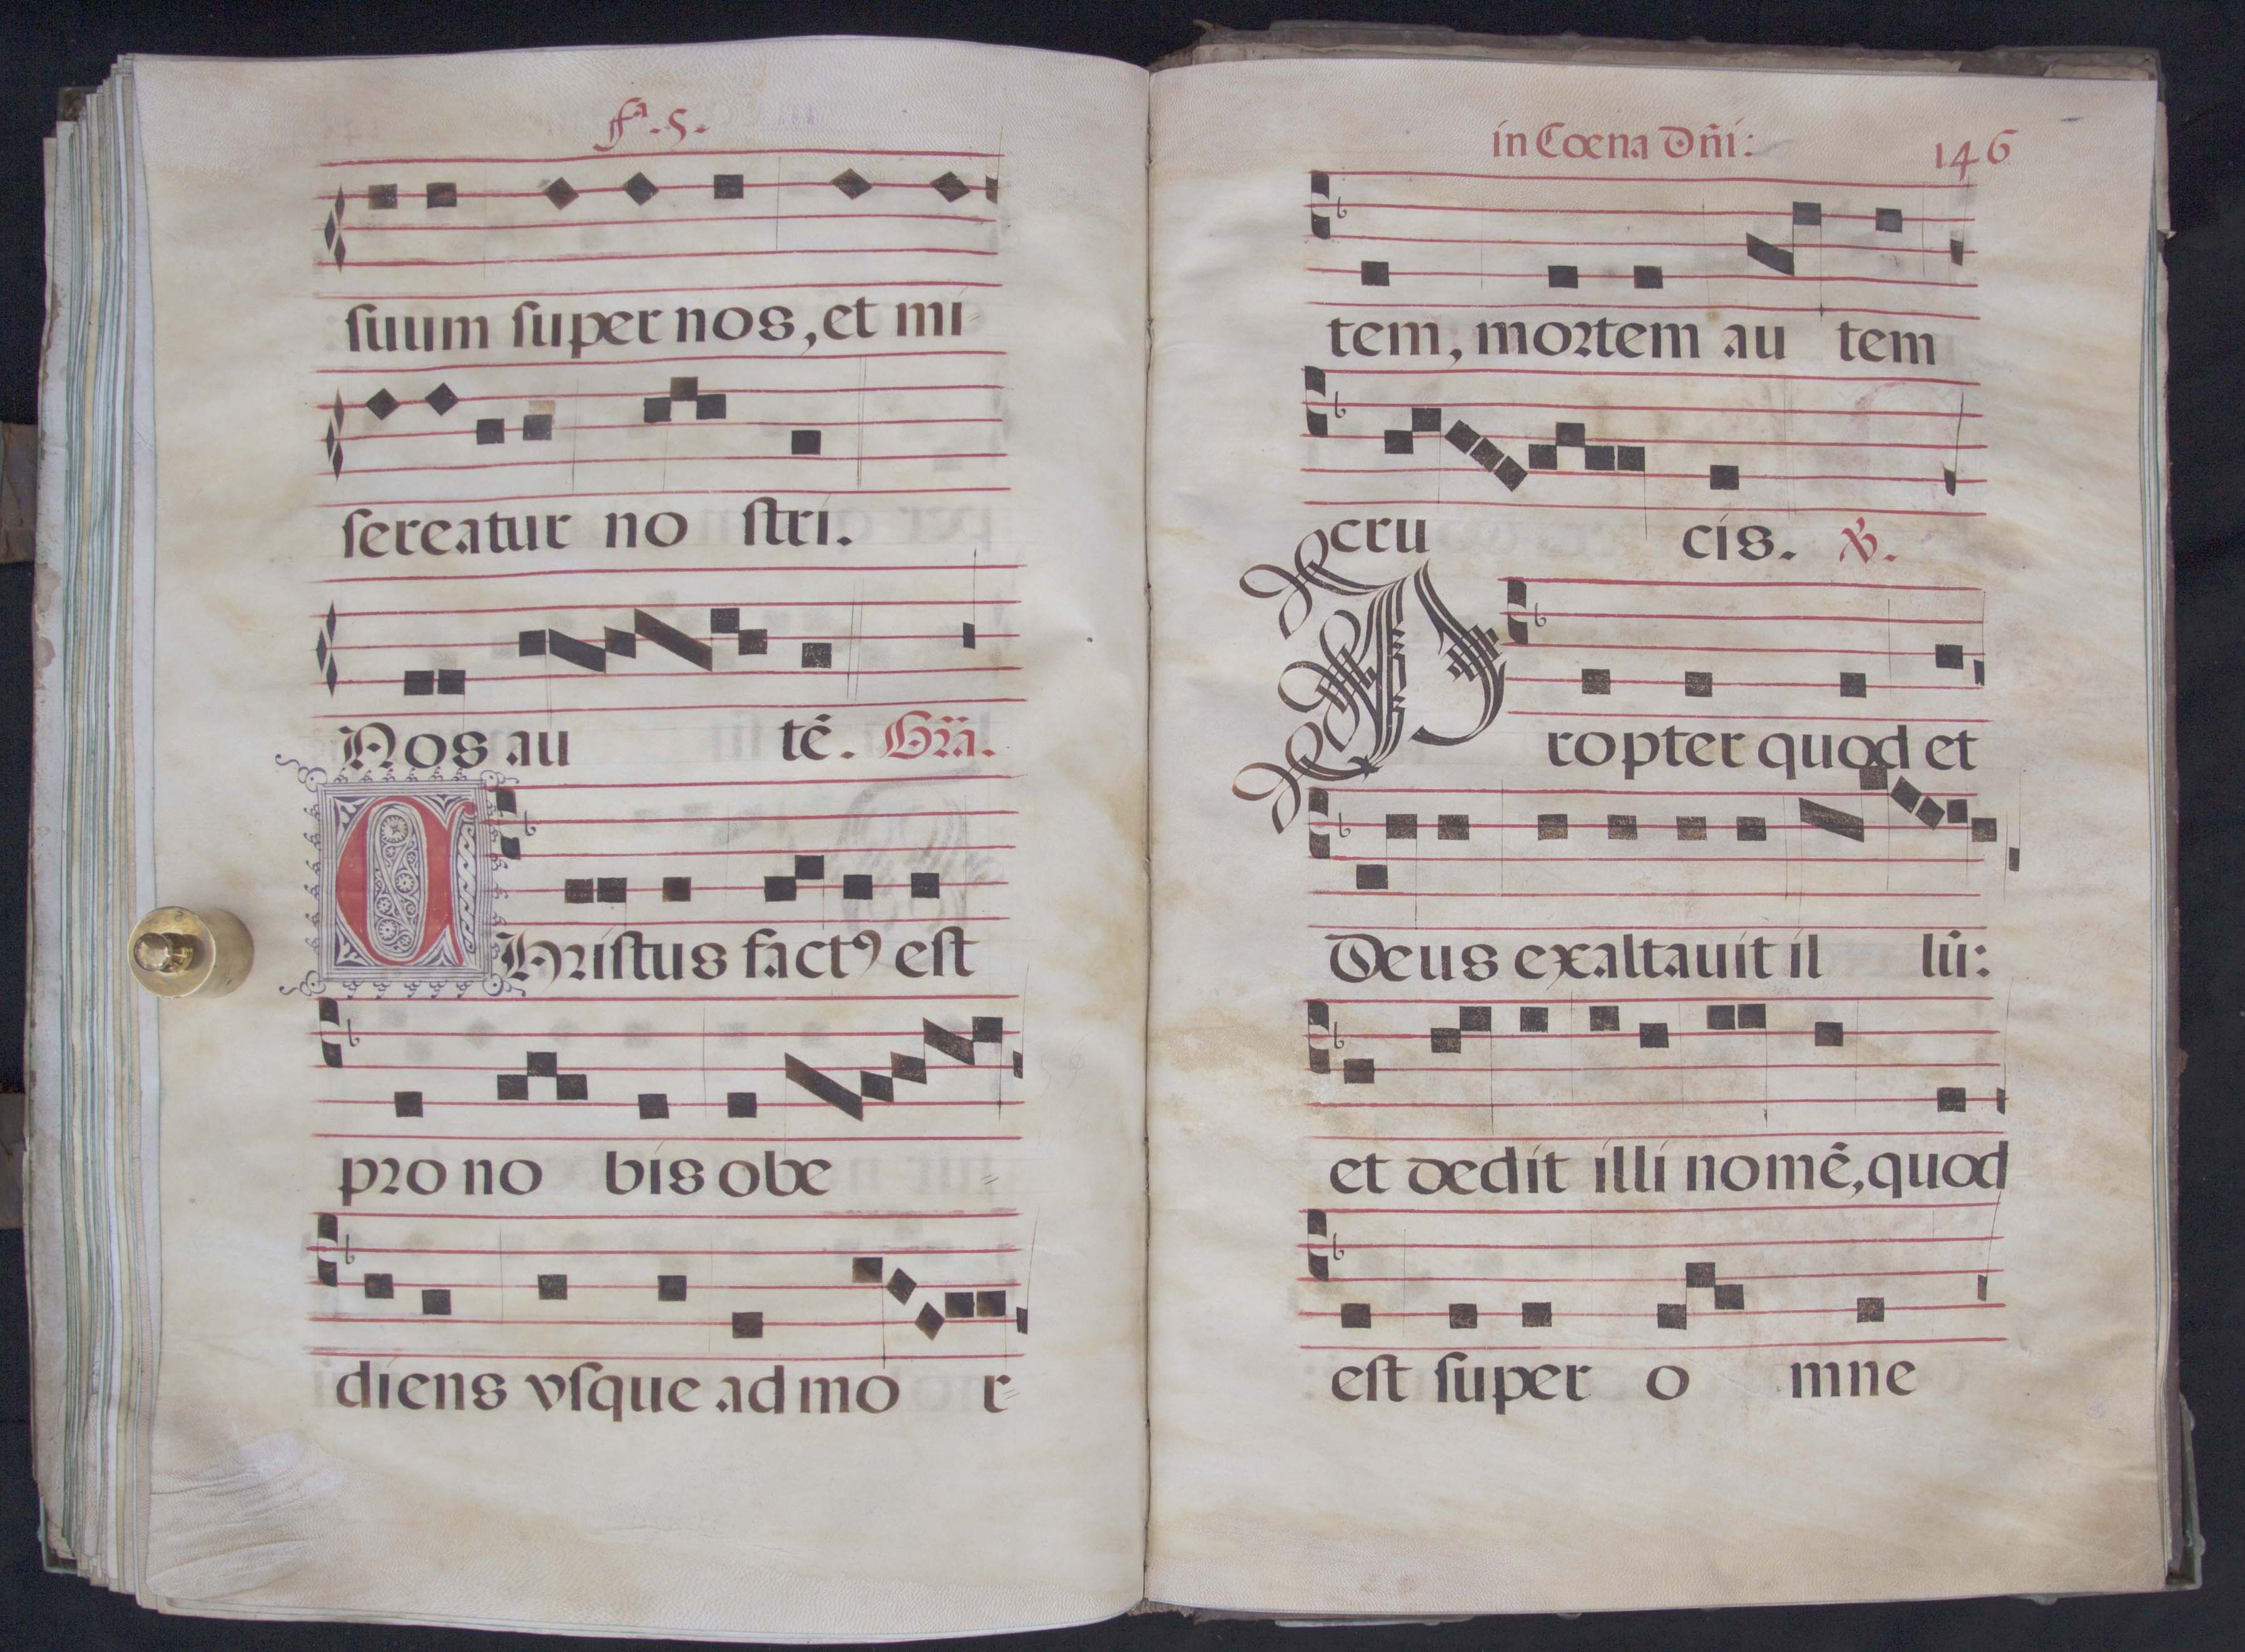 fª. 5.
ſuum ſuper nos, et mi=
ſereatur no ſtri.
Nos au tē. Gr̃a.
CHriſtus factꝰ eſt
pro no bis obe =
diens vſque ad mo r=
in Coena Dn̄i:
146
tem, mortem au tem
cru cis. ℣.
Propter quod et
Deus exaltauit il lū:
et dedit illi nomē, quod
eſt ſuper o mne